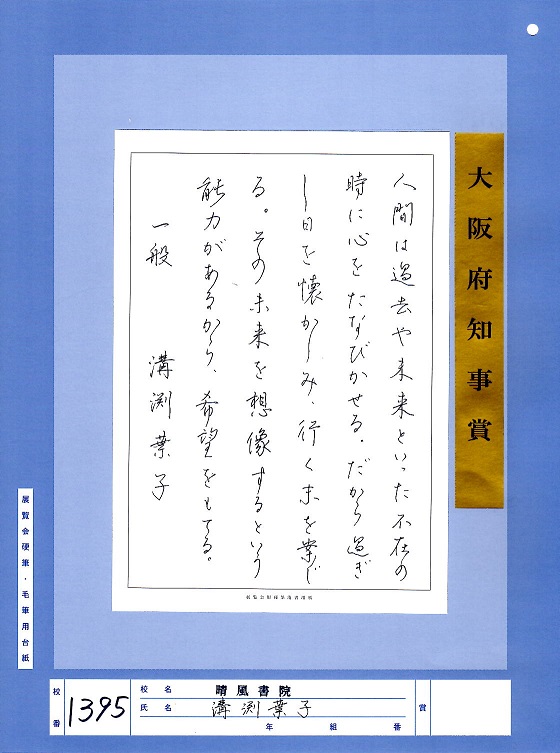 大阪府知事賞
人間は過去や未来といった不在の
時に心をたなびかせる。だから過ぎ
し日を懐かしみ、行く末を案じ
る。その未来を想像するという
能力があるから、希望をもてる。
一般 溝渕葉子
展覧会硬筆・毛筆用台紙
校番 1395
校名 晴風書院
氏名 溝渕葉子
年 組 番
賞